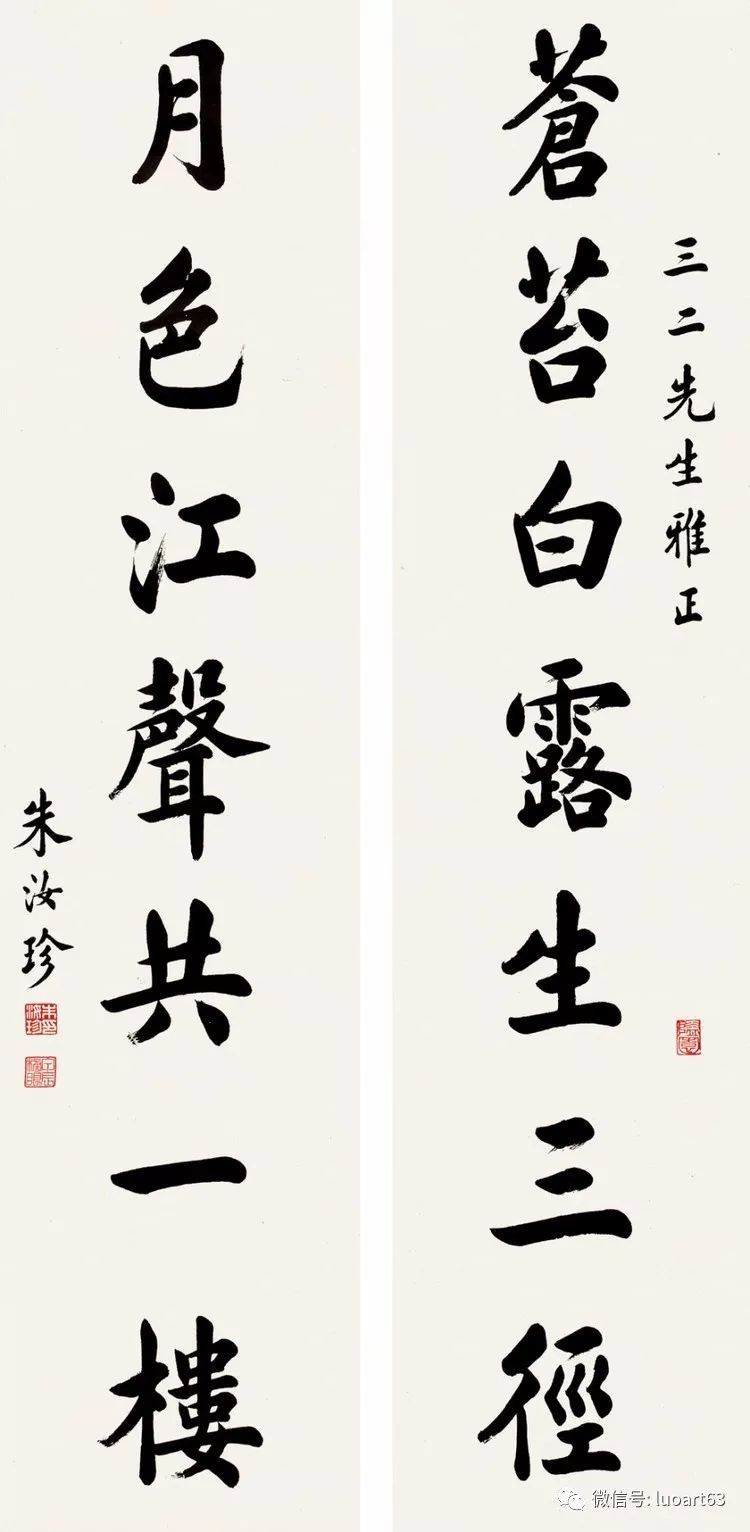 三二先生雅正
蒼苔白露生三徑
月色江聲共一樓
朱汝珍
朱汝珍印
微信号: luoart63